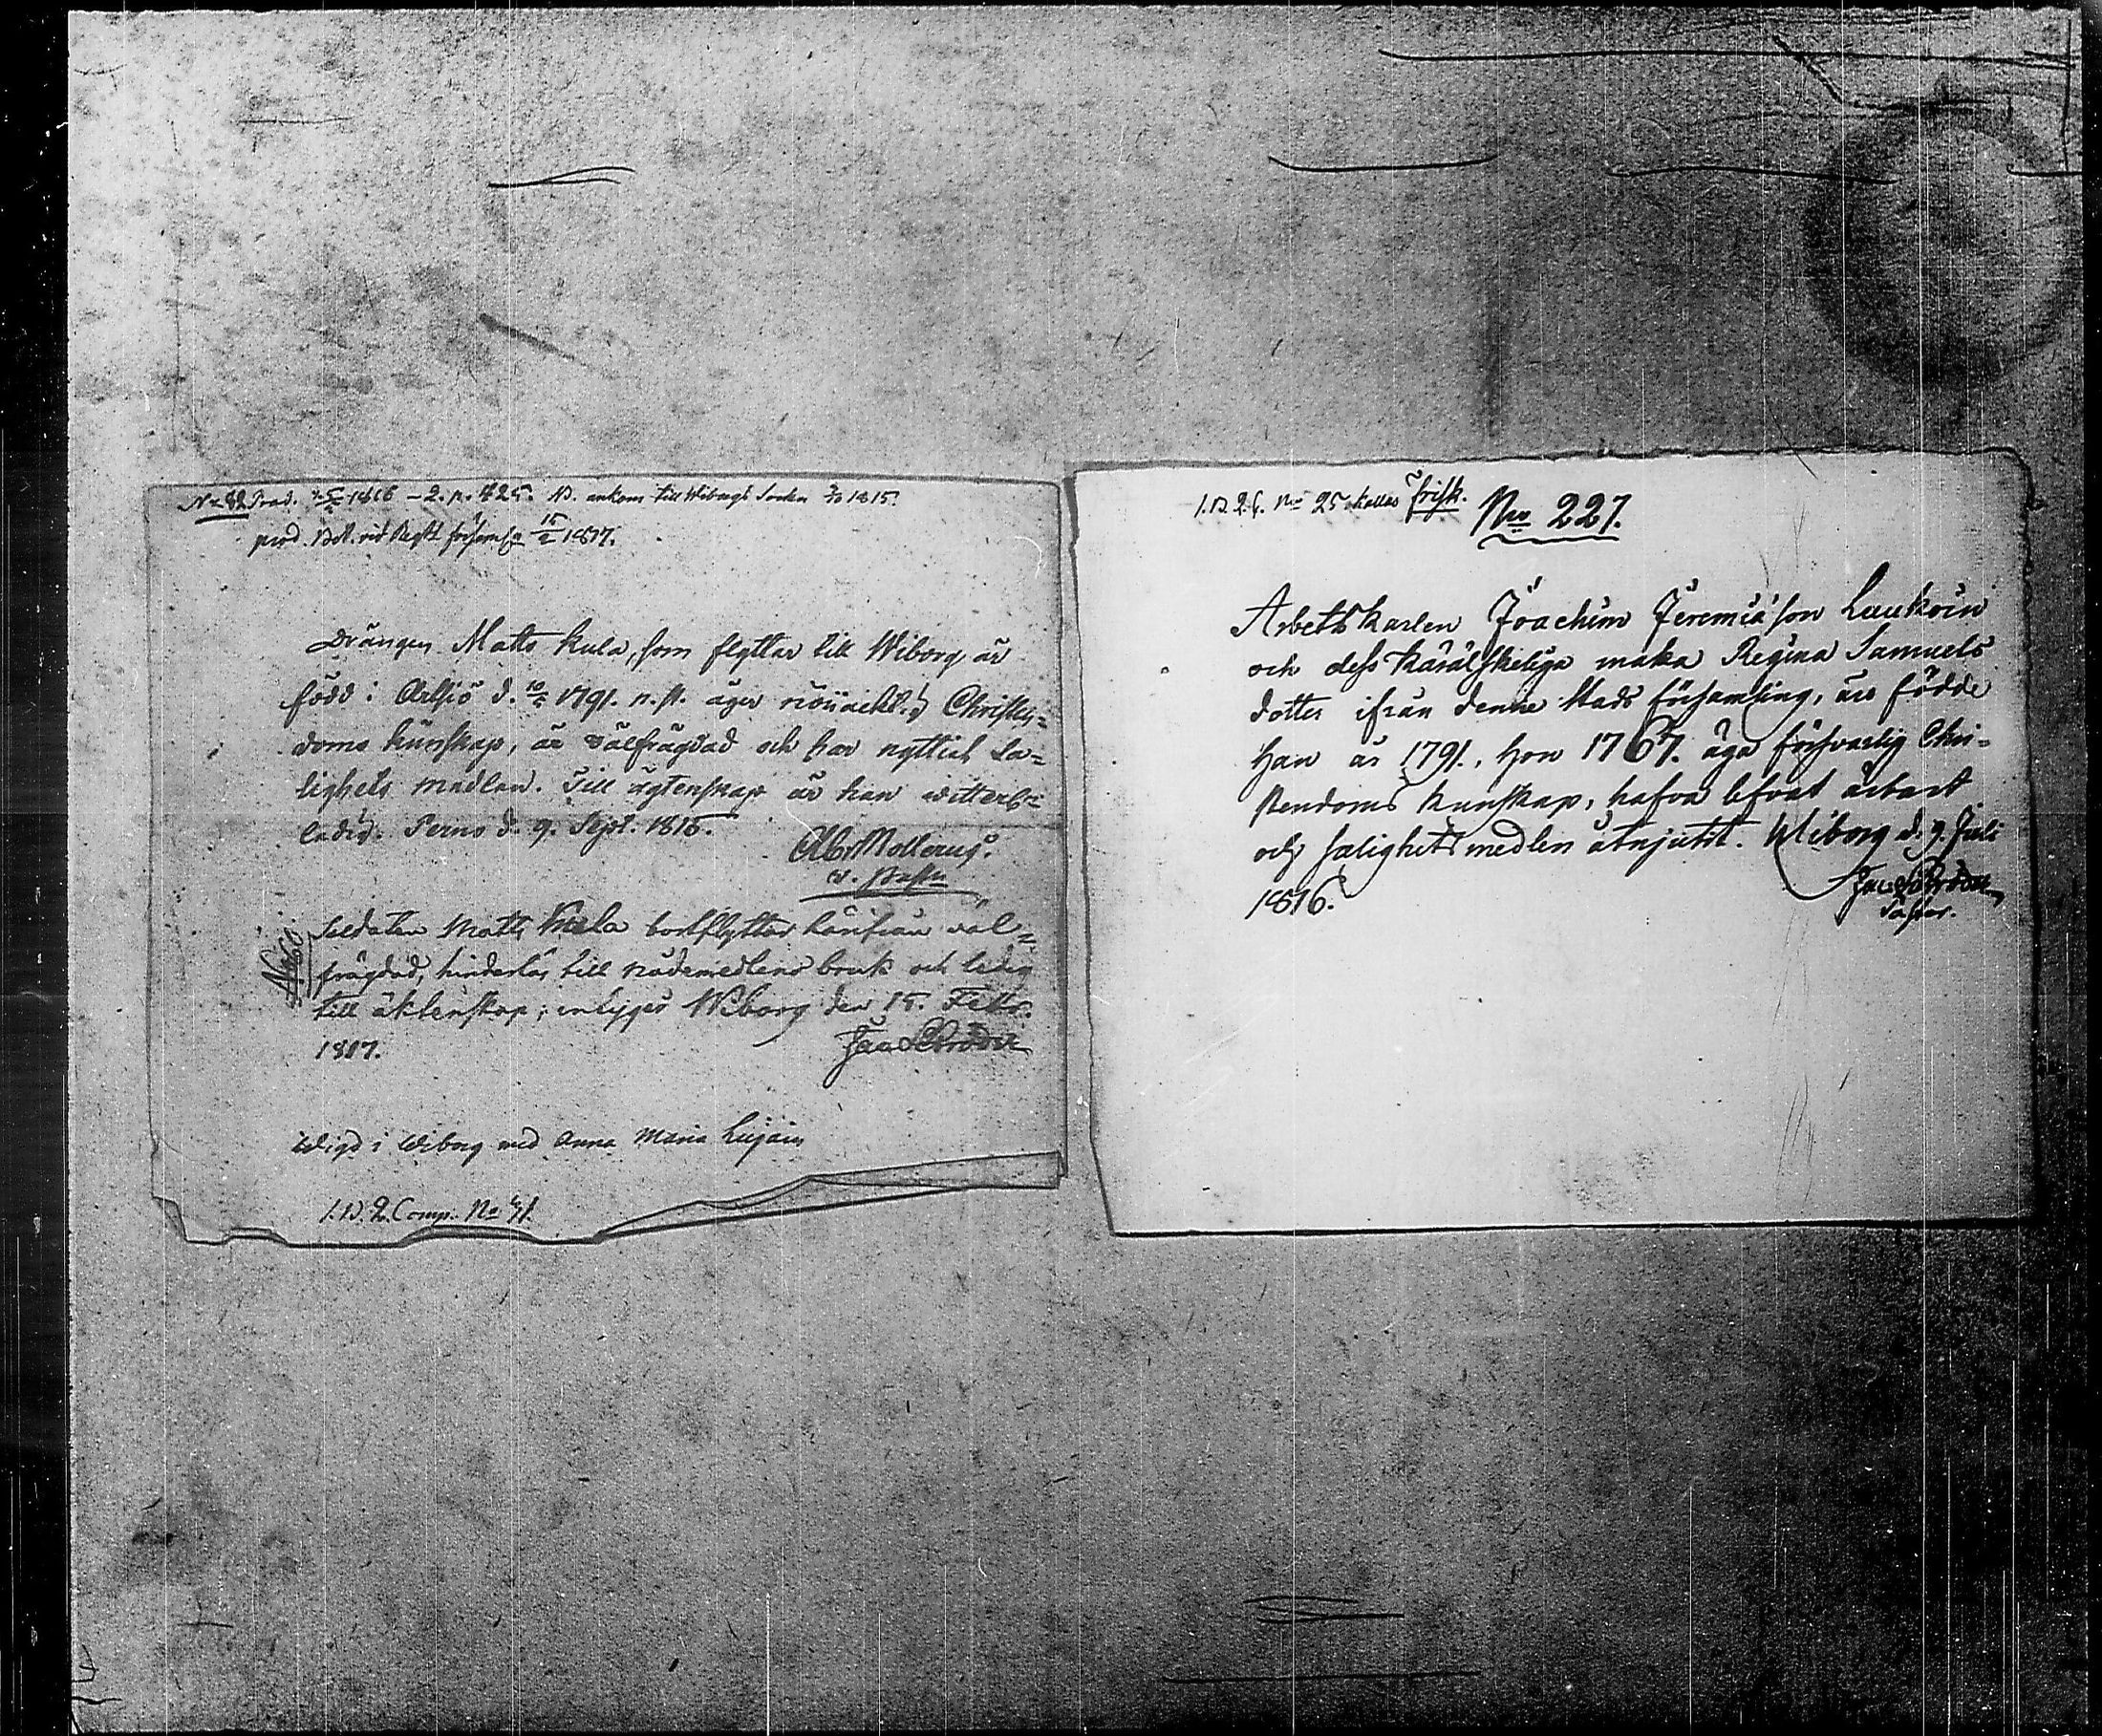 No 82 Prod. 1816 – 2. p. 425. N. ankom till Wiborgs Socken 1815.
prod. vid Regtt församl. 15/2 1817.
Drängen Matts Kula, som flyttar till Wiborg, är
född i Artsjö d. 10 1791. n. st. äger Christen=
doms kunskap, är välfrägdad och har nyttiat Sa=
lighets medlen. Till ägtenskap är han witterl:
ledig. Perno d. 9. Sept. 1815.
Abr Mollerus.
v. Past.
Soldaten Matts Kula bortflyttar härifrån väl=
frägdad, hinderlös till nådemedlens bruk och ledig
till äktenskap; intygas Wiborg den 15. Febr.
1817.
Jac. Schröder
Wigd i Wiborg med Anna Maria Lujain
1. B. 2. Comp. No 41.
1. B. 2. C. No 25 kallas Frisk.
No 227.
Arbetskarlen Joachim Jeremiæson Laukoin
och dess käräskeliga maka Regina Samuels
dotter ifrån denne Stads församling, äro födde
han år 1791., hon 1767. äga försvarlig Chri=
stendoms kunskap, hafva lefvat ärbart
och salighets medlen åtnjutit. Wiborg d. 9. Juli
1816.
Jac. Schröder
Pastor.